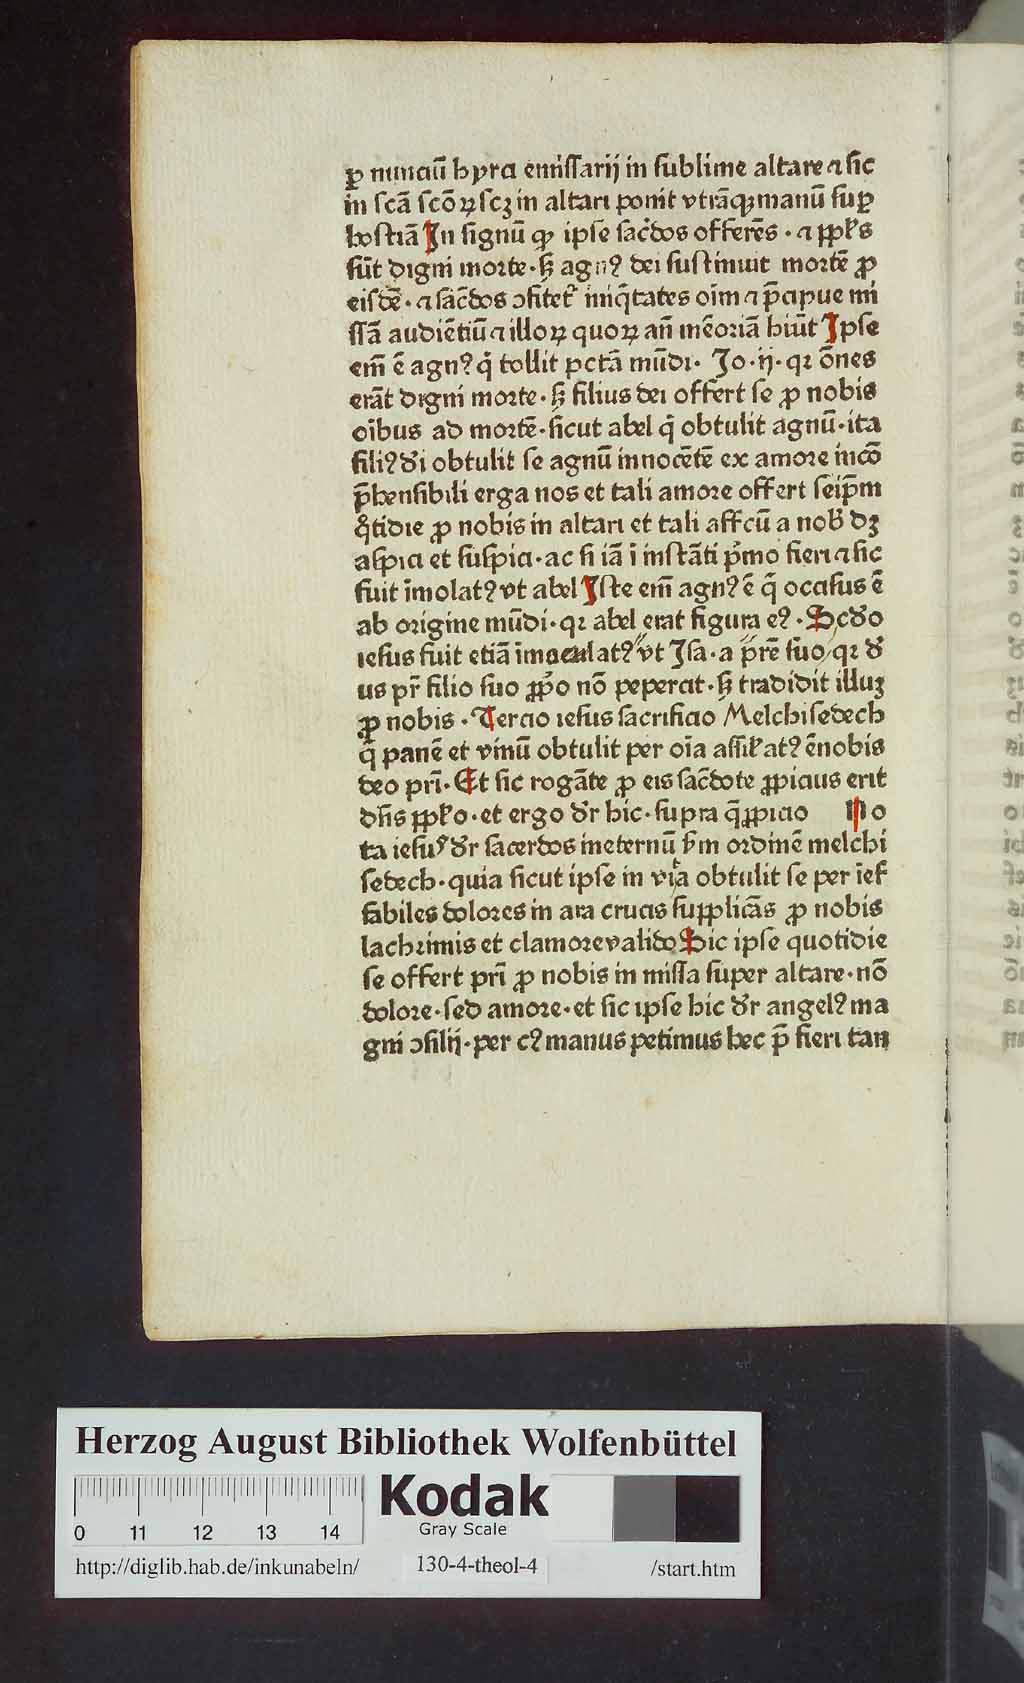 ꝓ nunciū hyrci emissarij in sublime altare ⁊ sic
in scā scōꝝ scꝫ in altari ponit vtrāqꝫ manū suꝑ
hostiā In signū ꝙ ipse sac̄dos offerēs · ⁊ ppl̄s
sūt digni morte · sꝫ agnꝰ dei sustinuit mortē ꝓ
eisdē · ⁊ sac̄dos ꝯfitet᷑ iniq̄tates oīm ⁊ p̄cipue mi
ssā audiētiū ⁊ illoꝝ quoꝝ an̄ mēoriā hiūt Ipse
em̄ ē agnꝰ q̇ tollit pctā mūdi · Jo · ij · qr ōnes
erāt digni morte · sꝫ filius dei offert se ꝓ nobis
oībus ad mortē · sicut abel q̇ obtulit agnū · ita
filiꝰ di obtulit se agnū innocētē ex amore incō
p̄hensibili erga nos et tali amore offert seip̄m
q̇tidie ꝓ nobis in altari et tali affcū a nob̄ dꝫ
aspici et suspici · ac si iā ī instāti ṗmo fieri ⁊ sic
fuit īmolatꝰ vt abel Iste em̄ agnꝰ ē q̇ occisus ē
ab origine mūdi · qr abel erat figura eꝰ · Scdo
iesus fuit etiā īmaculatꝰ vt Isa · a p̄re suo / qr d
us pr̄ filio suo ꝓṗo nō pepercit · sꝫ tradidit illuꝫ
ꝓ nobis · Tercio iesus sacrificio Melchisedech
q̇ panē et vinū obtulit per oīa assil̄atꝰ ē nobis
deo pri̇ · Et sic rogāte ꝓ eis sac̄dote ꝓpicius erit
dn̄s ppl̄o · et ergo dr hic · supra q̄ ꝓpicio No
ta iesuꝰ dr sacerdos ineternū ẜm ordinē melchi
sedech · quia sicut ipse in via obtulit se per īef
fabiles dolores in ara crucis supplicās ꝓ nobis
lachrimis et clamore valido Sic ipse quotidie
se offert pri̇ ꝓ nobis in missa super altare · nō
dolore · sed amore · et sic ipse hic dr angelꝰ ma
gni ꝯsilij · per cꝰ manus petimus hec p̄ fieri tan
Herzog August Bibliothek Wolfenbüttel
0 11 12 13 14
Kodak
Gray Scale
http://diglib.hab.de/inkunabeln/ 130-4-theol-4 /start.htm